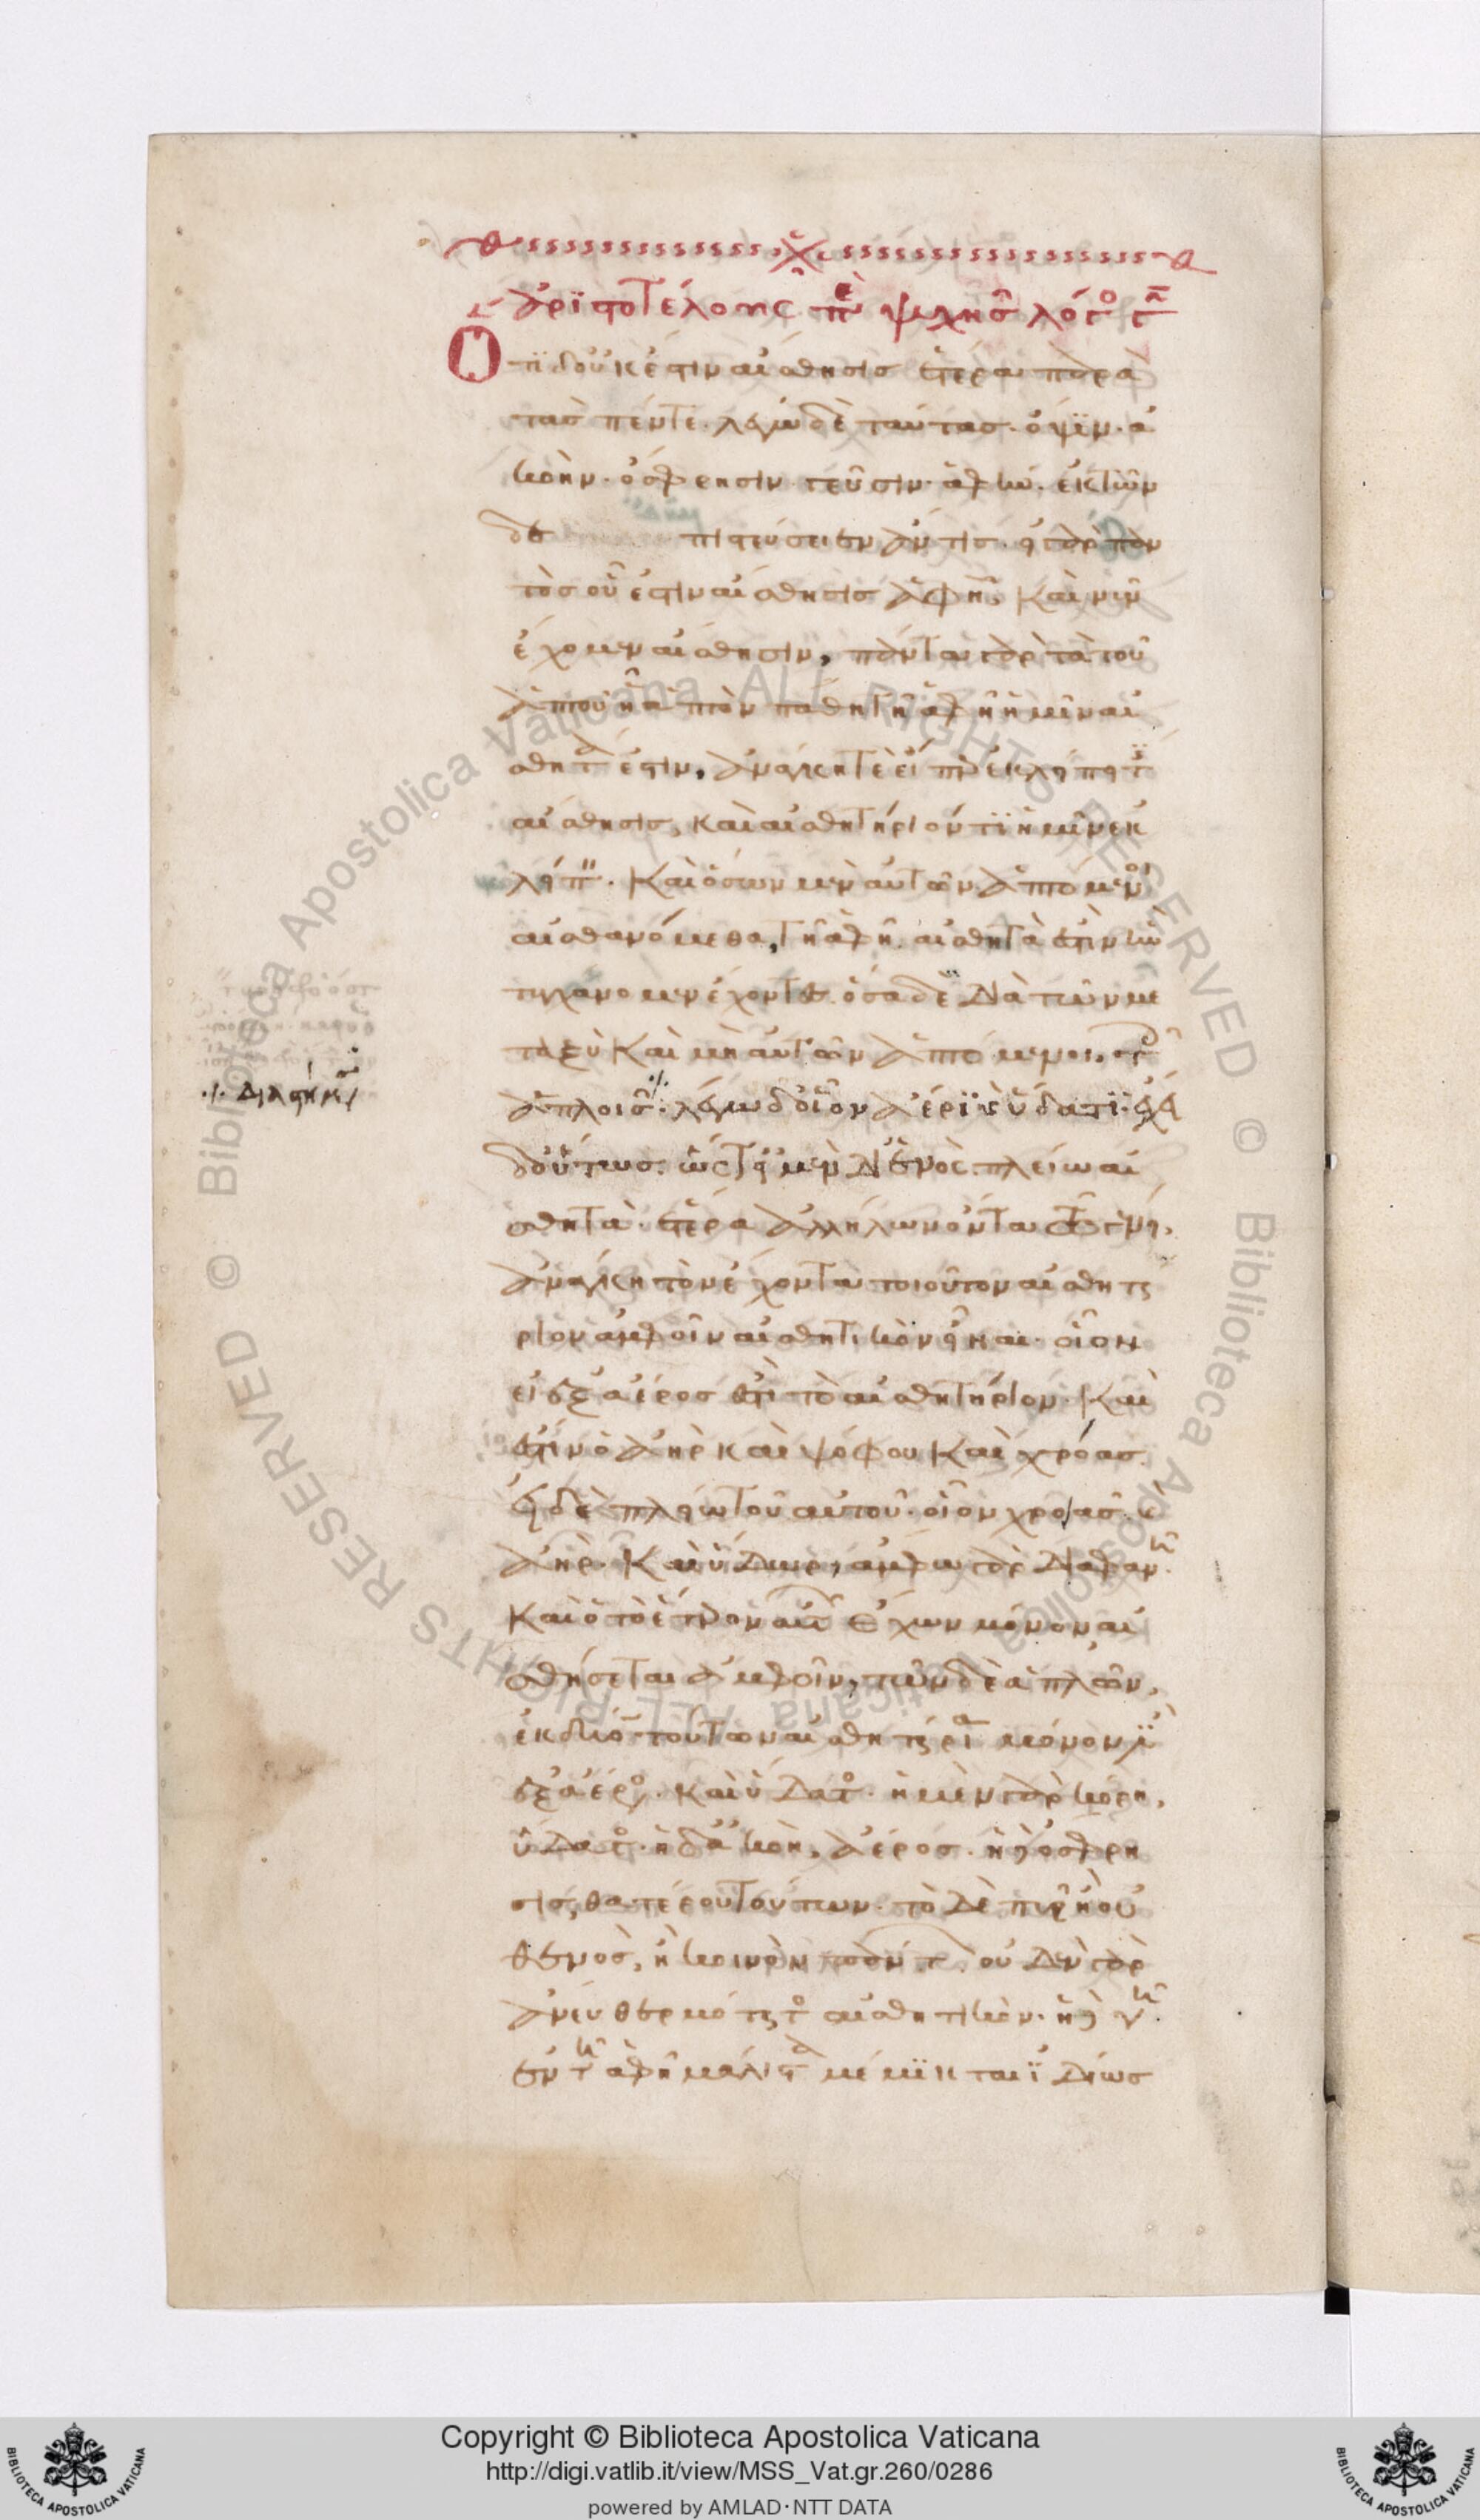 ἀριστοτέλους περὶ ψυχῆς λόγος γ
Ὅτι δ οὐκ ἔστιν αἴσθησις ἑτέρα παρὰ
τὰς πέντε. λέγω δὲ ταύτας. ὄψιν. ἀ
κοὴν. ὄσφρησιν. γεῦσιν. ἁφὴν. ἐκ τῶν
δε πιστεύσειεν ἄν τις. εἰ γὰρ παν
τὸς οὗ ἐστιν αἴσθησις ἁφὴ, καὶ νῦν
ἔχομεν αἴσθησιν, πάντα γὰρ τὰ τοῦ
ἁπτοῦ ᾗ ἁπτὸν πάθη τῇ ἁφῇ ἡμῖν αἰ
σθητά ἐστιν, ἀνάγκη τε εἴπερ ἐκλείπει τις
αἴσθησις, καὶ αἰσθητήριόν τι ἡμῖν ἐκ
λείπειν. καὶ ὅσων μὲν αὐτῶν ἁπτόμενοι
αἰσθανόμεθα, τῇ ἁφῇ αἰσθητά ἐστιν ἣν
τυγχάνομεν ἔχοντες. ὅσα δὲ διὰ τῶν με
ταξὺ καὶ μὴ αὐτῶν ἁπτόμενοι, τοῖς
ἁπλοῖς. λέγω δ οἷον ἀέρι καὶ ὕδατι. ἔχει
δ οὕτως. ὥστ εἰ μὲν δι ἑνὸς πλείω αἰ
σθητὰ ἕτερα ἀλλήλων ὄντα τῷ γένει,
ἀνάγκη τὸν ἔχοντα τοιοῦτον αἰσθητή
ριον ἀμφοῖν αἰσθητικὸν εἶναι. οἷον
εἰ ἐξ ἀέρος ἐστι τὸ αἰσθητήριον. καὶ
ἔστιν ὁ ἀὴρ καὶ ψόφου καὶ χρόας.
εἰ δὲ πλείω τοῦ αὐτοῦ. οἷον χρόας καὶ
ἀὴρ. καὶ ὕδωρ, ἄμφω γὰρ διαφανῆ.
καὶ ὁ τὸ ἕτερον αὐτῶν ἔχων μόνον αἰ
σθήσεται ἀμφοῖν, τῶν δὲ ἁπλῶν,
ἐκ δύο τούτων αἰσθητήρια μόνον
ἐξ ἀέρος. καὶ ὕδατος. ἡ μὲν γὰρ κόρη,
ὕδατος. ἡ δ ἀκοὴ, ἀέρος. ἡ δ ὄσφρη
σις, θατέρου τούτων. τὸ δὲ πῦρ ἢ οὐ
θενὸς, ἢ κοινὸν πάντων. οὐδὲν γὰρ
ἄνευ θερμότητος αἰσθητικὸν. ἡ δὲ γῆ
ἐν τῇ ἁφῇ μάλιστα μέμικται ἰδίως
Copyright © Biblioteca Apostolica Vaticana
http://digi.vatlib.it/view/MSS_Vat.gr.260/0286
powered by AMLAD·NTT DATA